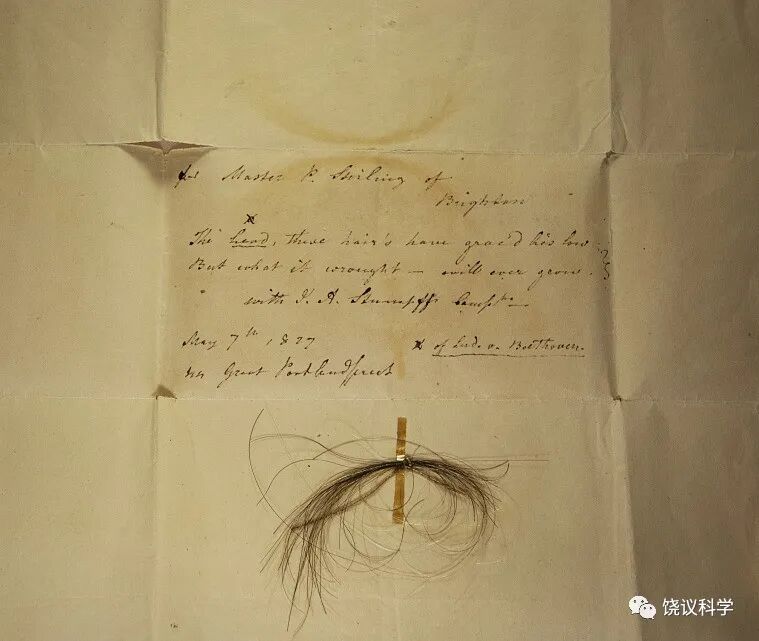 for Master P. Stirling of
Brighton
x
The head, these hair's have grac'd his low
But what it wrought — will ever grow.
with J. A. Stumpff's
May 7th, 1827
x of Lud. v. Beethoven.
Great Portland Street
饶议科学